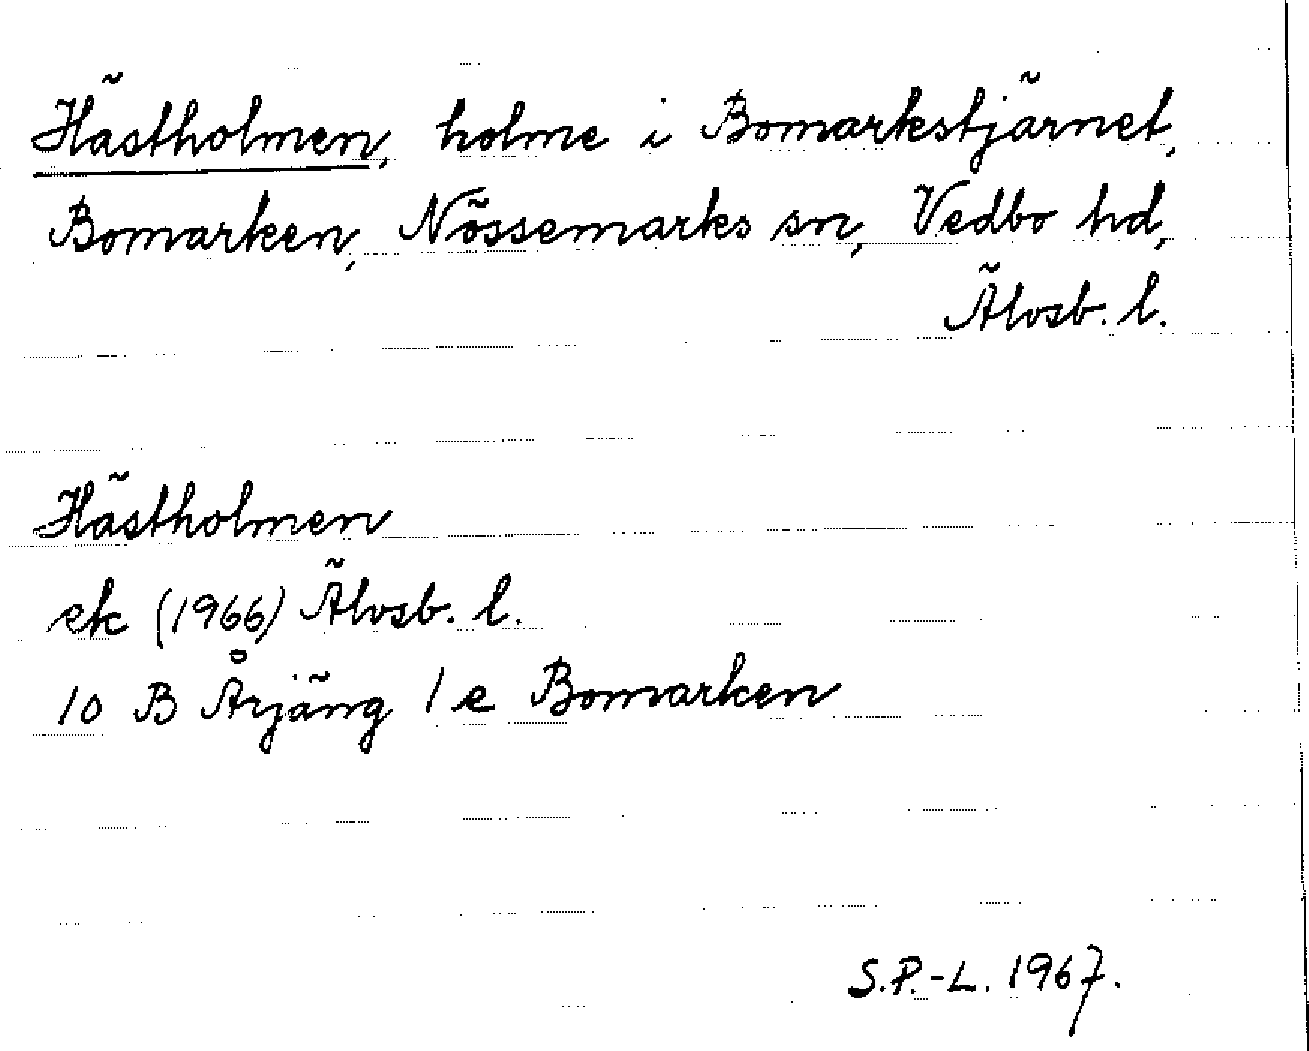 Hästholmen, holme i Bomarkstjärnet,
Bomarken, Nössemarks sn, Vedbo hd,
Älvsb. l.
Hästholmen
ek (1966) Älvsb. l.
10 B Årjäng 1 e Bomarken
S.P.-L. 1967.